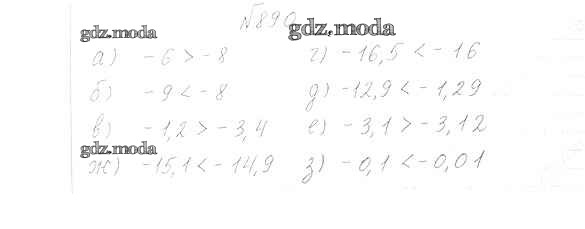 №890
gdz.moda gdz.moda
а) -6 > -8 г) -16,5 < -16
б) -9 < -8 д) -12,9 < -1,29
в) -1,2 > -3,4 е) -3,1 > -3,12
gdz.moda
ж) -15,1 < -14,9 з) -0,1 < -0,01